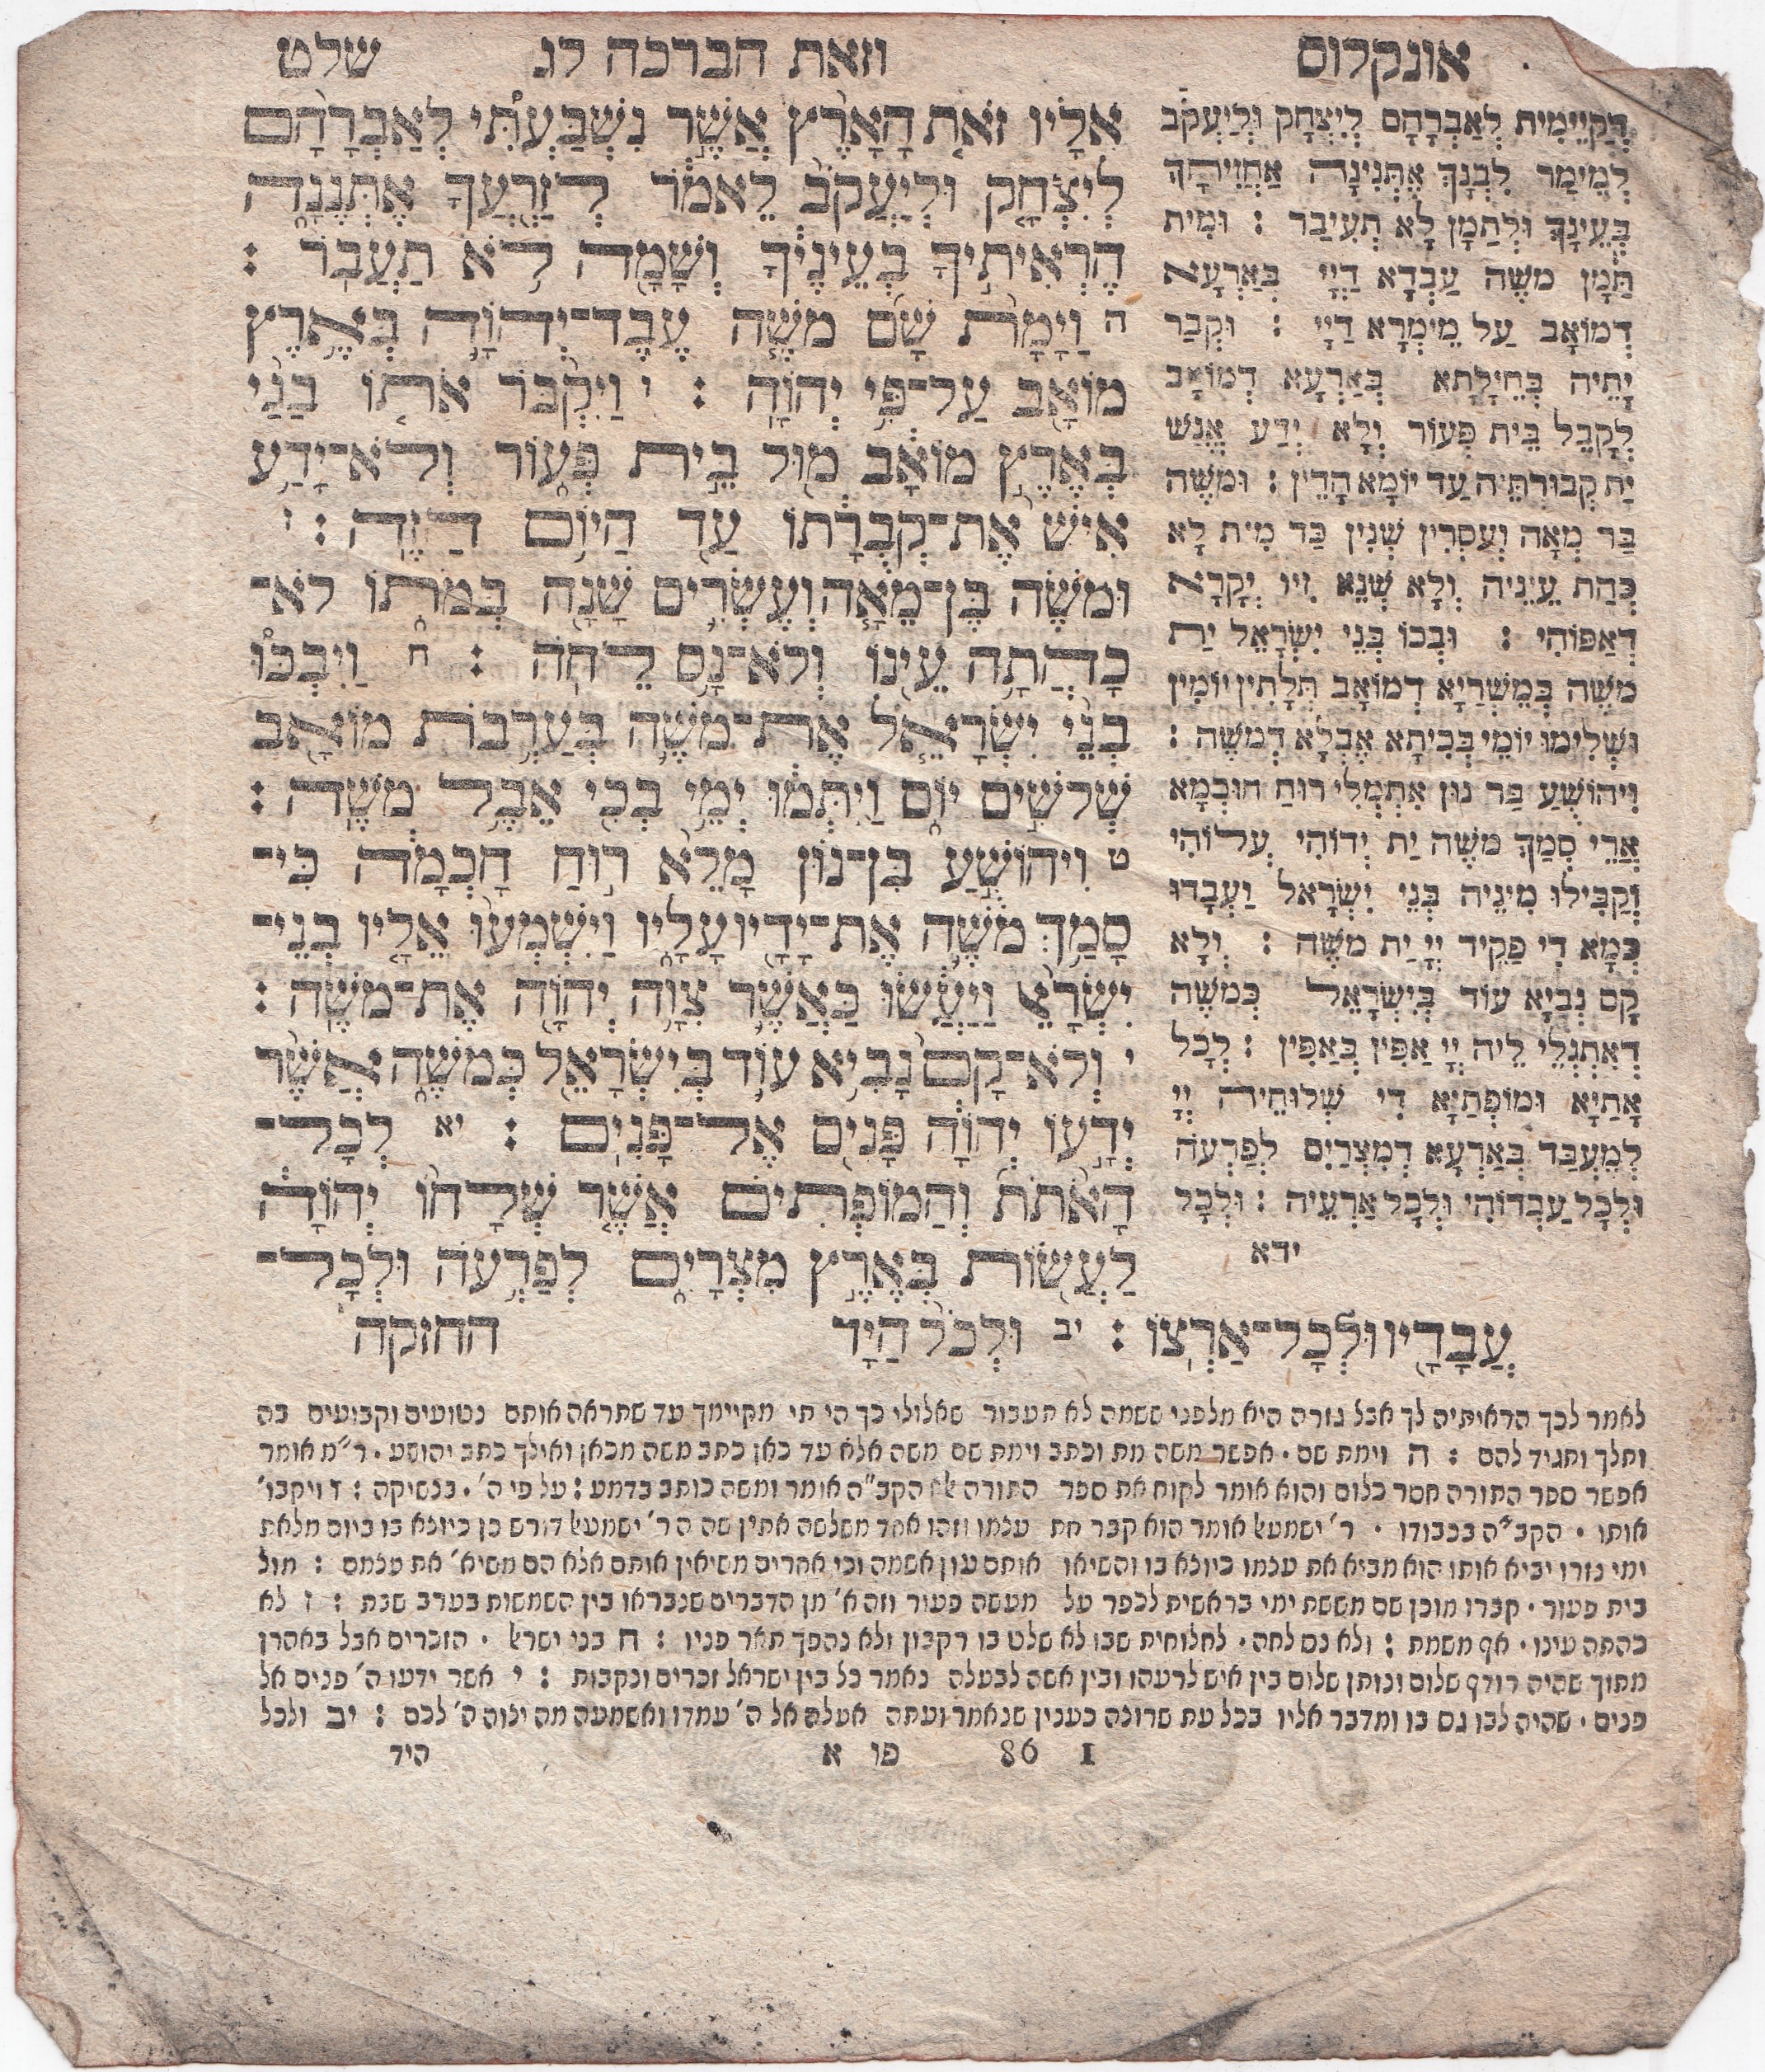 אונקלוס וזאת הברכה לג שלט
אֵלָיו זֹאת הָאָרֶץ אֲשֶׁר נִשְׁבַּעְתִּי לְאַבְרָהָם
לְיִצְחָק וּלְיַעֲקֹב לֵאמֹר לְזַרְעֲךָ אֶתְּנֶנָּה
הֶרְאִיתִיךָ בְעֵינֶיךָ וְשָׁמָּה לֹא תַעֲבֹר :
ה וַיָּמָת שָׁם מֹשֶׁה עֶבֶד־יְהוָה בְּאֶרֶץ
מוֹאָב עַל־פִּי יְהוָה : ו וַיִּקְבֹּר אֹתוֹ בַגַּי
בְּאֶרֶץ מוֹאָב מוּל בֵּית פְּעוֹר וְלֹא־יָדַע
אִישׁ אֶת־קְבֻרָתוֹ עַד הַיּוֹם הַזֶּה : ז
וּמֹשֶׁה בֶּן־מֵאָה וְעֶשְׂרִים שָׁנָה בְּמֹתוֹ לֹא־
כָהֲתָה עֵינוֹ וְלֹא־נָס לֵחֹה : ח וַיִּבְכּוּ
בְנֵי יִשְׂרָאֵל אֶת־מֹשֶׁה בְּעַרְבֹת מוֹאָב
שְׁלֹשִׁים יוֹם וַיִּתְּמוּ יְמֵי בְכִי אֵבֶל מֹשֶׁה :
ט וִיהוֹשֻׁעַ בִּן־נוּן מָלֵא רוּחַ חָכְמָה כִּי־
סָמַךְ מֹשֶׁה אֶת־יָדָיו עָלָיו וַיִּשְׁמְעוּ אֵלָיו בְּנֵי־
יִשְׂרָאֵל וַיַּעֲשׂוּ כַּאֲשֶׁר צִוָּה יְהוָה אֶת־מֹשֶׁה :
י וְלֹא־קָם נָבִיא עוֹד בְּיִשְׂרָאֵל כְּמֹשֶׁה אֲשֶׁר
יְדָעוֹ יְהוָה פָּנִים אֶל־פָּנִים : יא לְכָל־
הָאֹתֹת וְהַמּוֹפְתִים אֲשֶׁר שְׁלָחוֹ יְהוָה
לַעֲשׂוֹת בְּאֶרֶץ מִצְרָיִם לְפַרְעֹה וּלְכָל־
עֲבָדָיו וּלְכָל־אַרְצוֹ : יב וּלְכֹל הַיָּד החזקה
דְּקַיֵּימִית לְאַבְרָהָם לְיִצְחָק וּלְיַעֲקֹב
לְמֵימַר לִבְנָךְ אֶתְּנִינָהּ אַחֲזִיתָךְ
בְּעֵינָךְ וּלְתַמָּן לָא תְעִיבַר : וּמִית
תַּמָּן משֶׁה עַבְדָא דַיְיָ בְּאַרְעָא
דְמוֹאָב עַל מֵימְרָא דַיְיָ : וּקְבַר
יָתֵיהּ בְּחֵילָתָא בְּאַרְעָא דְמוֹאָב
לָקֳבֵל בֵּית פְּעוֹר וְלָא יְדַע אֱנָשׁ
יַת קְבוּרְתֵּיהּ עַד יוֹמָא הָדֵין : וּמשֶׁה
בַּר מְאָה וְעֶסְרִין שְׁנִין כַּד מִית לָא
כְּהַת עֵינֵיהּ וְלָא שְׁנָא זִיו יְקָרָא
דְאַפּוֹהִי : וּבְכוֹ בְּנֵי יִשְׂרָאֵל יַת
משֶׁה בְּמֵשְׁרַיָא דְמוֹאָב תְּלָתִין יוֹמִין
וּשְׁלִימוּ יוֹמֵי בְּכִיתָא אֶבְלָא דְמשֶׁה :
וִיהוֹשֻׁעַ בַּר נוּן אִתְמְלִי רוּחַ חוּכְמָא
אֲרֵי סְמַךְ משֶׁה יַת יְדוֹהִי עֲלוֹהִי
וְקַבִּילוּ מִינֵיהּ בְּנֵי יִשְׂרָאֵל וַעֲבָדוּ
כְּמָא דִי פַקִּיד יְיָ יַת משֶׁה : וְלָא
קָם נְבִיָא עוֹד בְּיִשְׂרָאֵל כְּמשֶׁה
דְאִתְגְּלִי לֵיהּ יְיָ אַפִּין בְּאַפִּין : לְכָל
אָתַיָּא וּמוֹפְתַיָּא דִי שַׁלְחֵיהּ יְיָ
לְמֶעְבַּד בְּאַרְעָא דְמִצְרַיִם לְפַרְעֹה
וּלְכָל עַבְדוֹהִי וּלְכָל אַרְעֵיהּ : וּלְכָל
ידא
לאמר לכך הראיתיה לך אבל גזרה היא מלפני ששמה לא תעבור שאלולי כך הייתי מקיימך עד שתראה אותם נטועים וקבועים בה
ותלך ותגיד להם : ה וימת שם . אפשר משה מת וכתב וימת שם משה אלא עד כאן כתב משה מכאן ואילך כתב יהושע . ר״מ אומר
אפשר ספר התורה חסר כלום והוא אומר לקוח את ספר התורה הקב״ה אומר ומשה כותב בדמע : על פי ה׳ . בנשיקה : ו ויקבו׳
אותו . הקב״ה בכבודו . ר׳ ישמעאל אומר הוא קבר את עצמו וזהו אחד משלשה אתין שהיה ר׳ ישמעאל דורש כן כיוצא בו ביום מלאת
ימי נזרו יביא אותו הוא מביא את עצמו כיוצא בו והשיאו אותם עון אשמה וכי אחרים משיאין אותם אלא הם משיא׳ את עצמם : מול
בית פעור . קברו מוכן שם מששת ימי בראשית לכפר על מעשה פעור וזה א׳ מן הדברים שנבראו בין השמשות בערב שבת : ז לא
כהתה עינו . אף משמת : ולא נס לחה . לחלוחית שבו לא שלט בו רקבון ולא נהפך תאר פניו : ח בני ישראל . הזכרים אבל באהרן
מתוך שהיה רודף שלום ונותן שלום בין איש לרעהו ובין אשה לבעלה נאמר כל בין ישראל זכרים ונקבות : י אשר ידעו ה׳ פנים אל
פנים . שהיה לבו גס בו ומדבר אליו בכל עת שרוצה כענין שנאמר ועתה אעלה אל ה׳ עמדו ואשמעה מה יצוה ה׳ לכם : יב ולכל
I 86 פו א היד